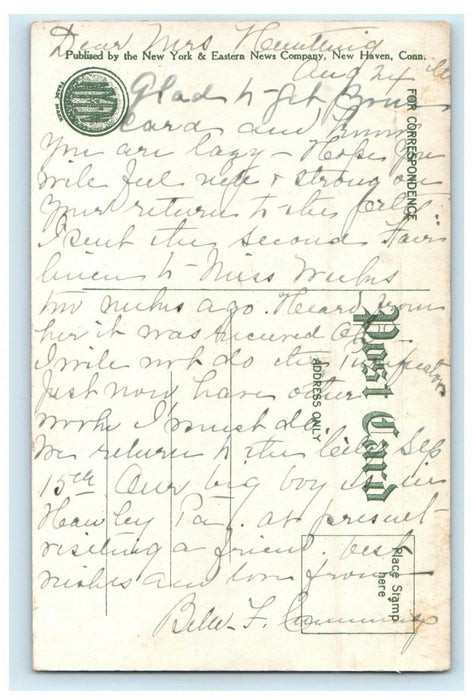 Dear Mrs
Publised by the New York & Eastern News Company, New Haven, Conn.
Aug 24
Glad to get your
card and know
you are lazy - Hope you
will feel well & strong on
your return to the
I sent the second Fair
linen to Miss
two weeks ago. Heard from
her it was received OK
I will not do the
just now have other
work I must do.
We return to the Sep
15th Our big boy is in
Hawley Pa. at present
visiting a friend. best
wishes and love from
Belle F. Cummings
TRADE MARK
FOR CORRESPONDENCE
Post Card
ADDRESS ONLY
Place Stamp
here